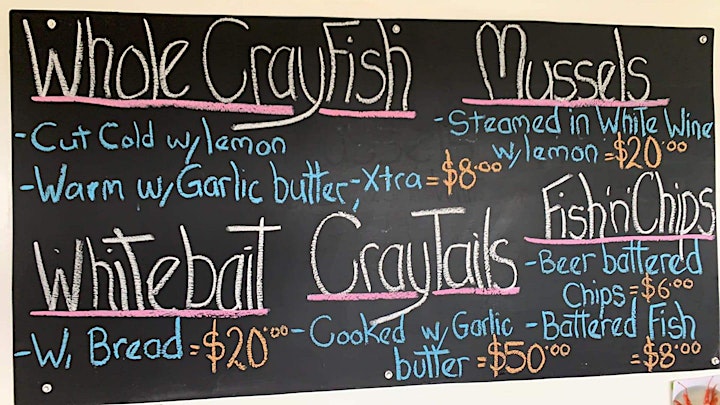 Whole CrayFish
-Cut Cold w/lemon
-Warm w/Garlic butter,-Xtra=$8.00
Mussels
-Steamed in White Wine
w/lemon=$20.00
Whitebait
-W, Bread=$20.00
CrayTails
-Cooked w/Garlic
butter=$50.00
Fish'n'Chips
-Beer battered
Chips=$6.00
-Battered Fish
=$8.00